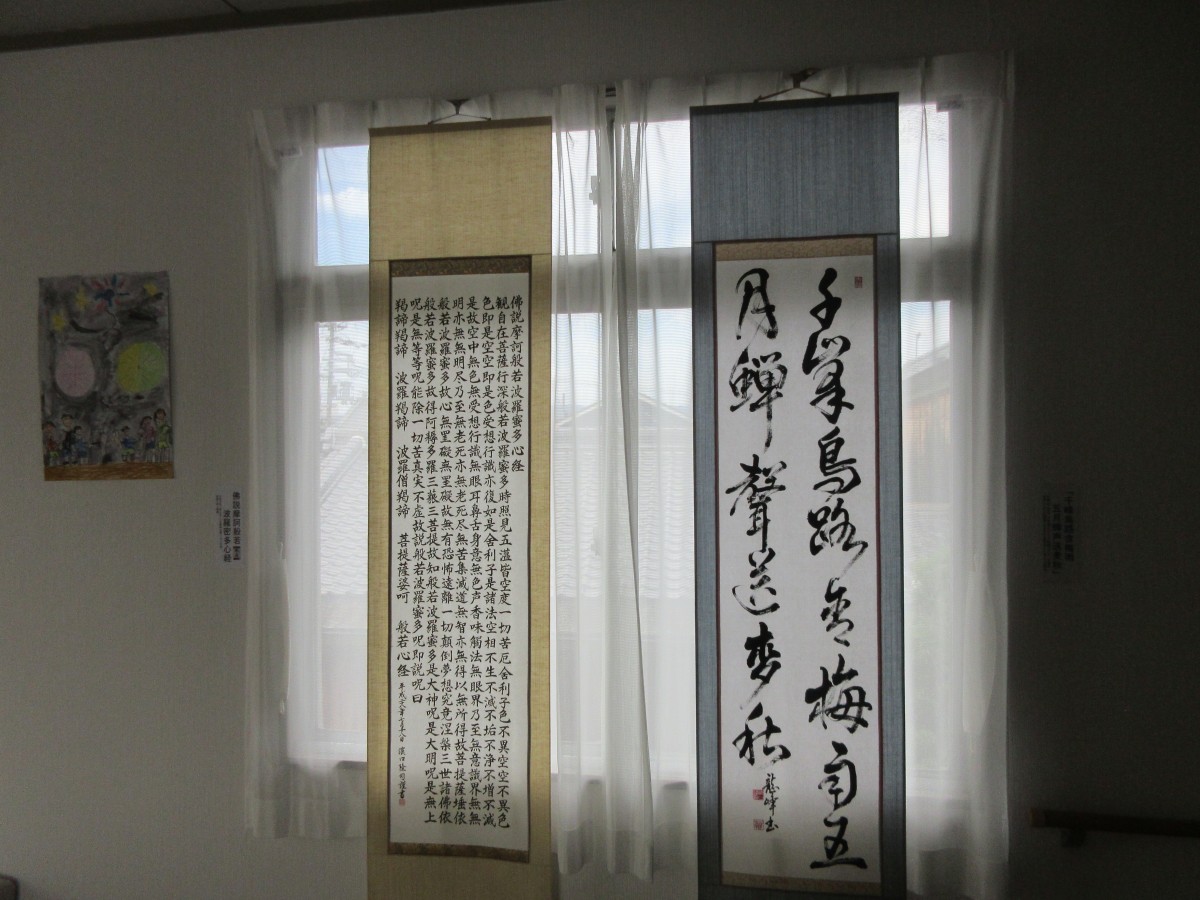 千峯鳥路含梅雨五
月蟬聲送麥秋
龍峰書
佛説摩訶般若波羅蜜多心経
観自在菩薩行深般若波羅蜜多時照見五蕰皆空度一切苦厄舎利子色不異空空不異色
色即是空空即是色受想行識亦復如是舎利子是諸法空相不生不滅不垢不浄不増不減
是故空中無色無受想行識無眼耳鼻舌身意無色声香味觸法無眼界乃至無意識界無無
明亦無無明尽乃至無老死亦無老死尽無苦集滅道無智亦無得以無所得故菩提薩埵依
般若波羅蜜多故心無罣礙無罣礙故無有恐怖遠離一切顛倒夢想究竟涅槃三世諸佛依
般若波羅蜜多故得阿耨多羅三藐三菩提故知般若波羅蜜多是大神呪是大明呪是無上
呪是無等等呪能除一切苦真実不虚故説般若波羅蜜多呪即説呪曰
羯諦羯諦 波羅羯諦 波羅僧羯諦 菩提薩婆呵 般若心経
佛説摩訶般若
波羅密多心経